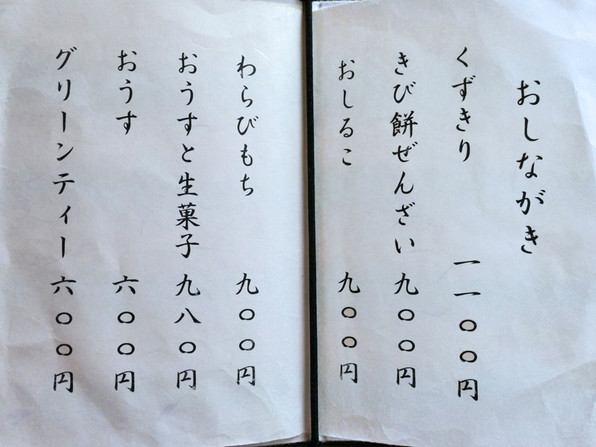 おしながき
くずきり 一一〇〇円
きび餅ぜんざい 九〇〇円
おしるこ 九〇〇円
わらびもち 九〇〇円
おうすと生菓子 九八〇円
おうす 六〇〇円
グリーンティー 六〇〇円